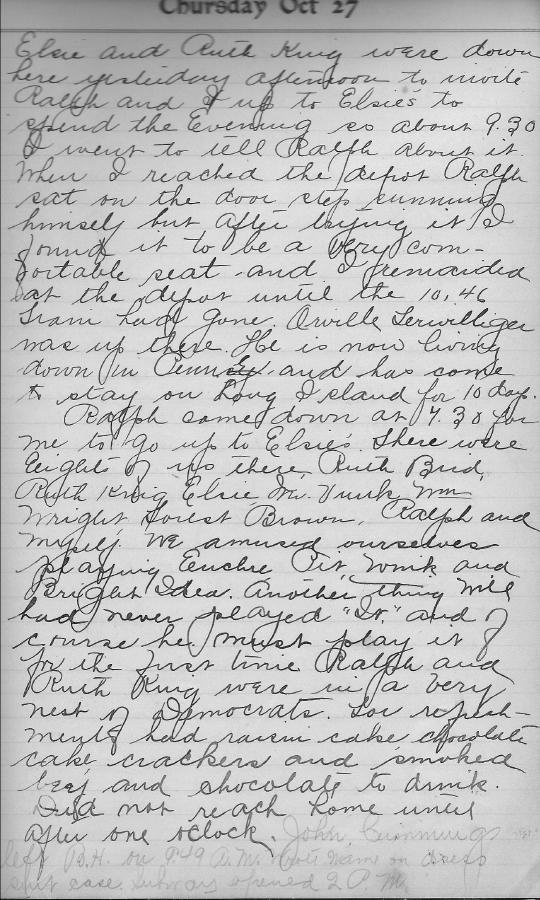 Thursday Oct 27
Elsie and Ruth King were down
here yesterday afternoon to invite
Ralph and I up to Elsie's to
spend the Evening so about 9.30
I went to tell Ralph about it.
When I reached the depot Ralph
sat on the door step sunning
himself but after trying it I
found it to be a very com-
fortable seat and I remained
at the depot until the 10.46
train had gone. Orville Terwilliger
was up there. He is now living
down in Penn and has come
to stay on Long Island for 10 days.
Ralph came down at 7.30 for
me to go up to Elsie's. There were
Eight of us there, Ruth Bird,
Ruth King Elsie, Mr. Vunk, Wm
Wright Forest Brown, Ralph and
myself. We amused ourselves
playing Euchre Pit, Wnik and
Bright Idea. Another thing Will
had never played "It." and of
course he must play it
for the first time Ralph and
Ruth King were in a very
nest of Democrats. For refresh-
ments had raisin cake chocolate
cake, crackers and smoked
beef and chocolate to drink.
Did not reach home until
after one oclock. John Cummings
left B.H. on 9:49 A.M. name on dress
suit case. Subway opened 2 P.M.